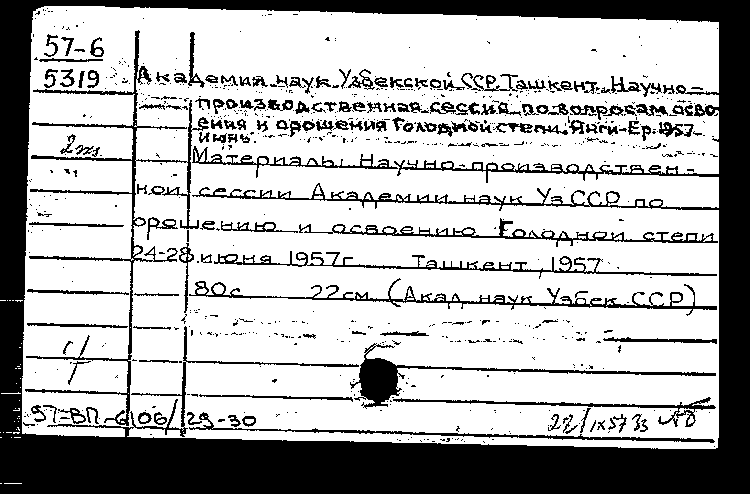 57-6
5319 Академия наук Узбекской ССР. Ташкент. Научно-
производственная сессия по вопросам осво
ения и орошения Голодной степи. Янги-Ер. 1957
июнь.
2 экз
Материалы Научно-производствен-
ной сессии Академии наук УзССР по
орошению и освоению Голодной степи
24-28 июня 1957г Ташкент, 1957
80с 22см (Акад наук Узбек ССР)
57-ВП-6106/29-30